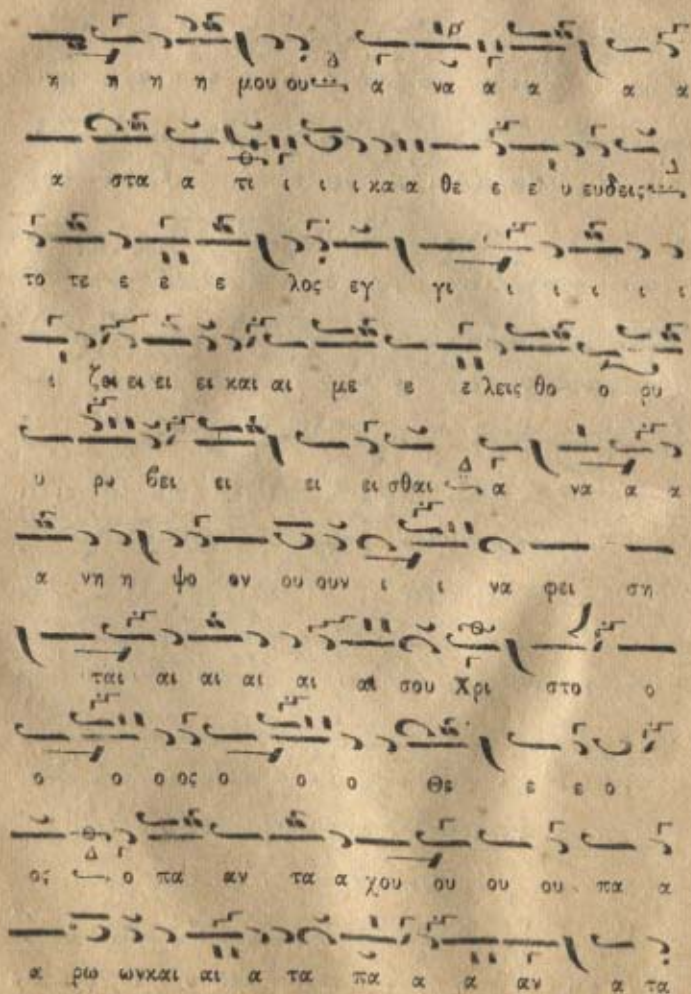 η η η η μου ου α να α α α α
α στα α τι ι ι ι κα α θε ε ε υ ευδεις
το τε ε ε ε λος εγ γι ι ι ι ι ι
ι ζει ει ει ει και αι με ε ε λεις θο ο ρυ
υ ρυ βει ει ει ει σθαι α να α α
α νη η ψο ον ου ουν ι ι να φει ση
ται αι αι αι αι αι σου Χρι στο ο
ο ο ο ος ο ο ο Θε ε ε ο
ος ο πα αν τα α χου ου ου ου πα α
α ρω ων και αι α τα πα α α αν α τα